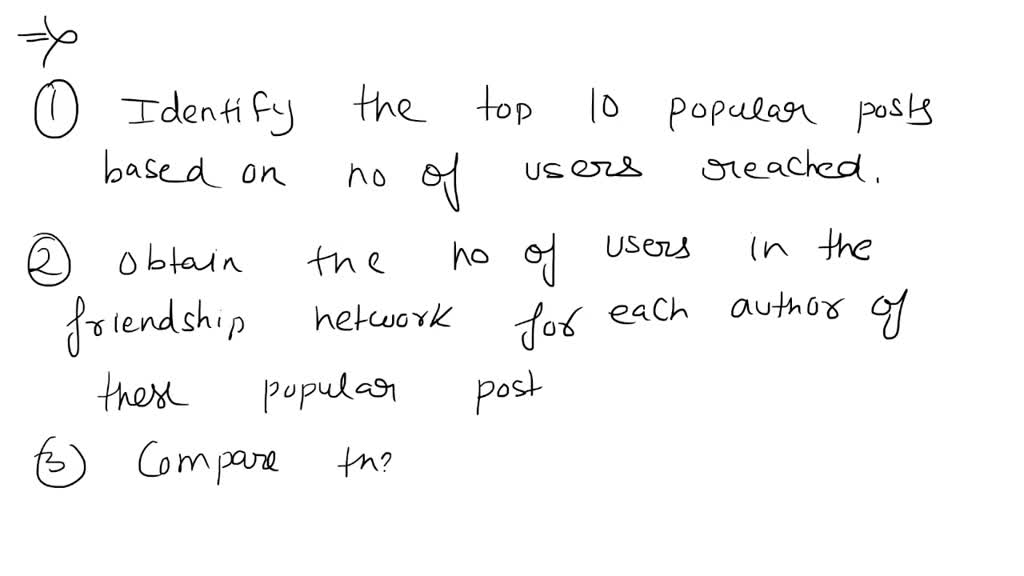 ⇒
① Identify the top 10 popular posts
based on no of users reached.
② Obtain the no of users in the
friendship network for each author of
these popular post
③ Compare th